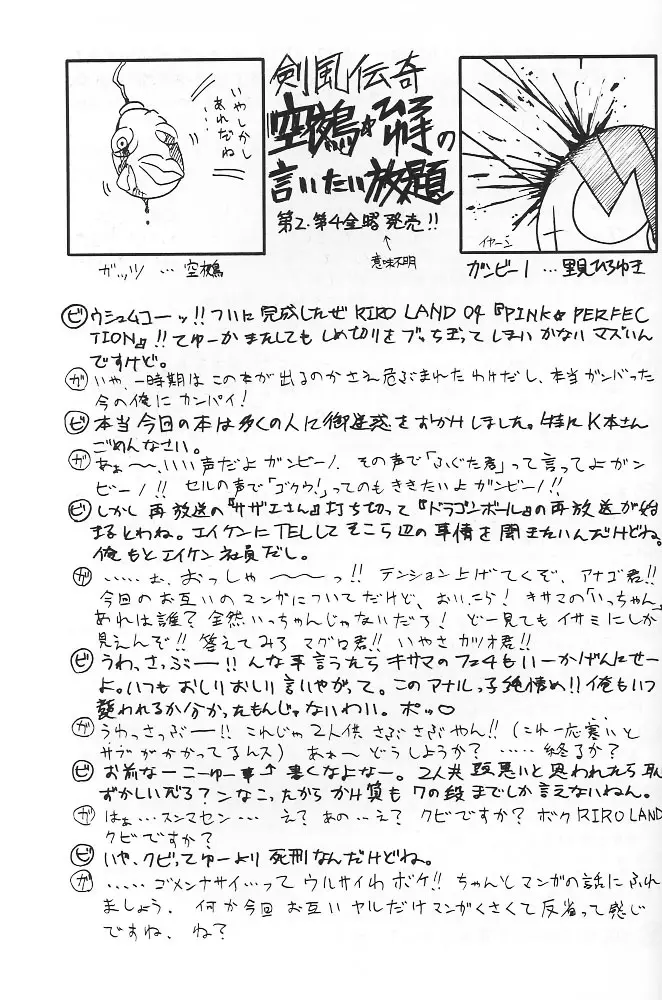 いやしかし
あれだね
剣風伝奇
空鵺☆ひろ
の
言いたい放題
第2.第4金曜発売!!
↑
意味不明
イヤーン
ガッツ …空鵺
ガンビー1…里見ひろゆき
ビ ウシュムコーッ!!ついに完成したぜRIRO LAND 04『PINK☆PERFEC
TION』!!てゆーかまたしてもしめ切りをブッちぎってしまいかないマズいん
ですけど。
ガ いや、一時期はこの本が出るのかさえ危ぶまれたわけだし、本当ガンバった
今の俺にカンパイ!
ビ 本当今回の本は多くの人に御迷惑をおかけしました。特にK本さん
ごめんなさい。
ガ あぁ〜、いい声だよガンビーノ. その声で「ふぐた君」って言ってよガン
ビーノ!! セルの声で「ゴクウ!」ってのもききたいよガンビーノ!!
ビ しかし再放送の『サザエさん』打ち切って『ドラゴンボール』の再放送が始
まるとわね。エイケンにTELしてそこら辺の事情を聞きたいんだけどね。
俺もとエイケン社員だし。
ガ ……お、おっしゃ〜〜っ!! テンション上げてくぞ、アナゴ君!!
今回のお互いのマンガについてだけど、おいこら! キサマの「いっちゃん」
あれは誰? 全然いっちゃんじゃないだろ! どー見てもイサミにしか
見えんぞ!! 答えてみろマグロ君!! いやさカツオ君!!
ビ うわ、さっぶー!! んな事言うたらキサマのフェ4もいーかげんにせー
よ。いつもおしりおしり言いやがって。このアナルっ子純情め!!俺もいつ
襲われるか分かったもんじゃないわい。ポッ♡
ガ うわっさっぶー!! これじゃ2人供さぶさぶやん!! (これ一応寒いと
サブがかかってるんス) あぁ〜どうしようか? ……終るか?
ビ お前なーこーゆー事↑書くなよなー。2人共頭悪いと思われたら恥
ずかしいだろ?ンなこったからかけ算も7の段までしか言えないねん。
ガ はぁ…スンマセン… え? あの…え? クビですか? ボクRIRO LAND
クビですか?
ビ いや、クビってゆーより死刑なんだけどね。
ガ ……ゴメンナサイ…ってウルサイわボケ!! ちゃんとマンガの話にふれ
ましょう. 何か今回お互いヤルだけマンガくさくて反省って感じ
ですね、ね?